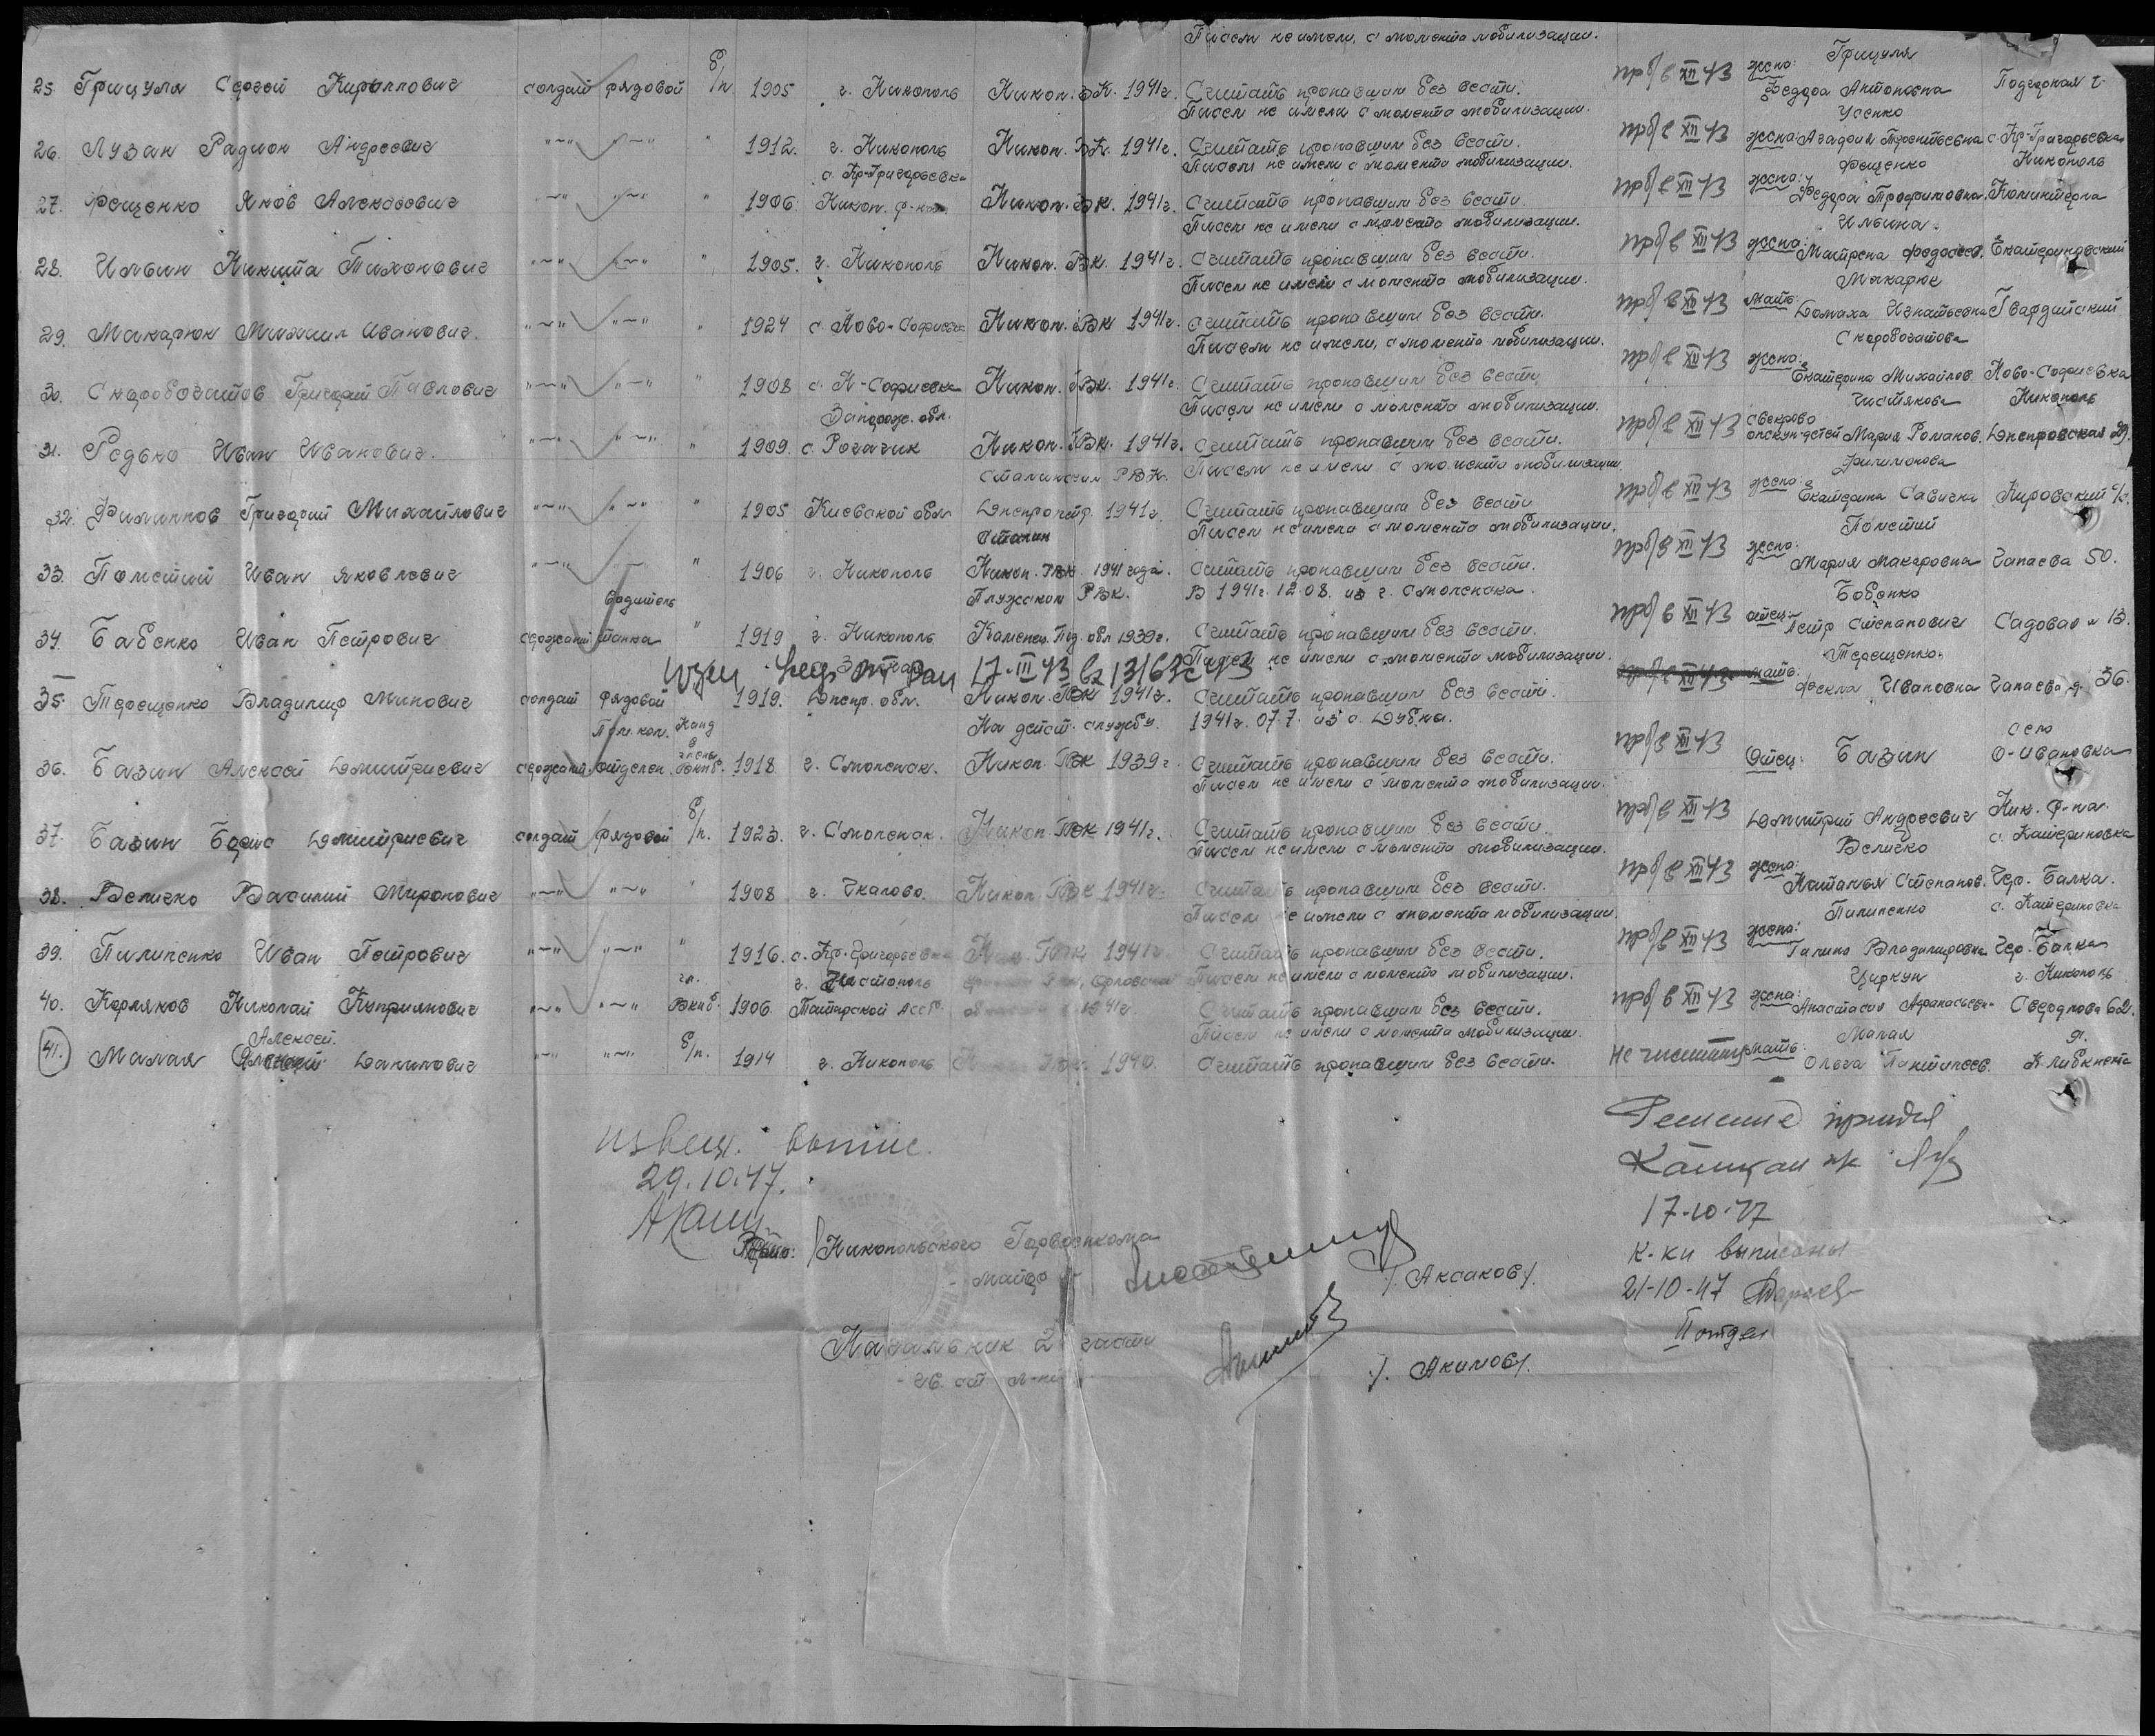 Писем не имели, с момента мобилизации.
25. Грицуля Сергей Кириллович солдат рядовой б/п 1905 г. Никополь Никон. ГВК. 1941г. Считать пропавшим без вести. проп в XII 43 жена: Грицуля Федора Антоновна Подгорная 2
Писем не имели с момента мобилизации.
26. Лузан Радион Андреевич "~" "~" " 1912. г. Никополь Никоп. ГВК. 1941г. Считать пропавшим без вести. проп в XII 43 жена: Усенко Агафия Терентьевна с. Кр-Григорьевка
Писем не имели с момента мобилизации.
27. Фещенко Яков Алексеевич "~" "~" " 1906 с. Кр-Григорьевка Никоп. р-на Никоп. ГВК. 1941г. Считать пропавшим без вести. проп в XII 43 жена: Фещенко Федора Трофимовна Никополь Коминтерна
Писем не имели с момента мобилизации.
28. Ильин Никита Тихонович "~" "~" " 1905. г. Никополь Никоп. ГВК. 1941г. Считать пропавшим без вести. проп в XII 43 жена: Ильина Матрена Федосеев. Екатериновский
Писем не имели с момента мобилизации.
29. Макарюк Михаил Иванович. "~" "~" " 1924 с. Ново-Софиевка Никоп. ГВК 1941г. Считать пропавшим без вести. проп в XII 43 мать: Макарюк Домаха Игнатьевна Гвардейский
Писем не имели, с момента мобилизации.
30. Скоробогатов Григорий Павлович "~" "~" " 1908 с. Н-Софиевка Никоп. ГВК. 1941г. Считать пропавшим без вести проп в XII 43 жена: Скоробогатова Екатерина Михайлов. Ново-Софиевка
Писем не имели с момента мобилизации.
31. Редько Иван Иванович. "~" "~" " 1909. Запорож. обл. с. Рогачик Никоп. ГВК. 1941г. Считать пропавшим без вести. проп в XII 43 свекровь опекун-детей Чистякова Мария Романов. Никополь Днепровская 29.
Писем не имели с момента мобилизации.
32. Филиппов Григорий Михайлович "~" "~" " 1905 Киевской обл. Сталинским РВК. Днепропетр. 1941г. Считать пропавшим без вести проп в XII 43 жена: Филимонова Екатерина Савична Кировский
Писем не имели с момента мобилизации.
33. Полстий Иван Яковлевич "~" "~" " 1906 г. Никополь Никоп. ГВК. 1941 года. Считать пропавшим без вести. проп в XII 43 жена: Полстий Мария Макаровна Чапаева 50.
В 1941г. 12.08. из г. Смоленска.
34. Бабенко Иван Петрович сержант водитель танка " 1919 г. Никополь Плужским РВК. Каменец Под. обл 1939г. Считать пропавшим без вести. проп в XII 43 отец: Бабенко Петр Степанович Садовая 13.
Писем не имели с момента мобилизации.
17-III 43 вх 13163с 43
35. Терещенко Владимир Минович солдат рядовой 1919. Днепр. обл. Никоп. ГВК 1941г. Считать пропавшим без вести. мать: Терещенко. Фекла Ивановна Чапаева 36.
1941г. 07.7. из г. Дубна.
36. Базин Алексей Дмитриевич сержант Пом. ком. отделен. Канд в члены ВКП/б. 1918 г. Смоленск. На дейст. службу. Никоп. ГВК 1939г. Считать пропавшим без вести. проп в XII 43 Отец: Базин село О-Ивановка
Писем не имели с момента мобилизации.
37. Базин Борис Дмитриевич солдат рядовой б/п. 1923. г. Смоленск. Никоп. ГВК 1941г. Считать пропавшим без вести. проп в XII 43 Дмитрий Андреевич Ник. р-на.
Писем не имели с момента мобилизации.
38. Величко Василий Миронович "~" "~" " 1908 г. Чкалово. Никоп. ГВК 1941г. Считать пропавшим без вести. проп в XII 43 жена: Величко Наталья Степанов. с. Катериновка Чер. Балка.
Писем не имели с момента мобилизации.
39. Пилипенко Иван Петрович "~" "~" " 1916. с. Кр-Григорьевка Ник. ГВК 1941г. Считать пропавшим без вести. проп в XII 43 жена: Пилипенко Галина Владимировна с. Катериновка Чер. Балка
Писем не имели с момента мобилизации.
40. Корляков Николай Куприянович "~" "~" чл. ВКП/б. 1906. г. Чистополь Татарской АССР. 1941г. Считать пропавшим без вести. проп в XII 43 жена: Циркун Анастасия Афанасьевн. г. Никополь Свердлова 62.
Писем не имели с момента мобилизации.
41. Малая Алексей Данилович "~" "~" б/п. 1914 г. Никополь 1940. Считать пропавшим без вести. не числит мать: Малая Ольга Пантилеев. К Либкнехта
извещ. выпис.
29.10.47.
Никопольского Горвоенкома
- майор - /. Аксаков /.
Начальник 2 части
- гв. ст л-нт - /. Акимов /.
Решение принял
17-10-47
к-ки выписаны
21-10-47
II отдел